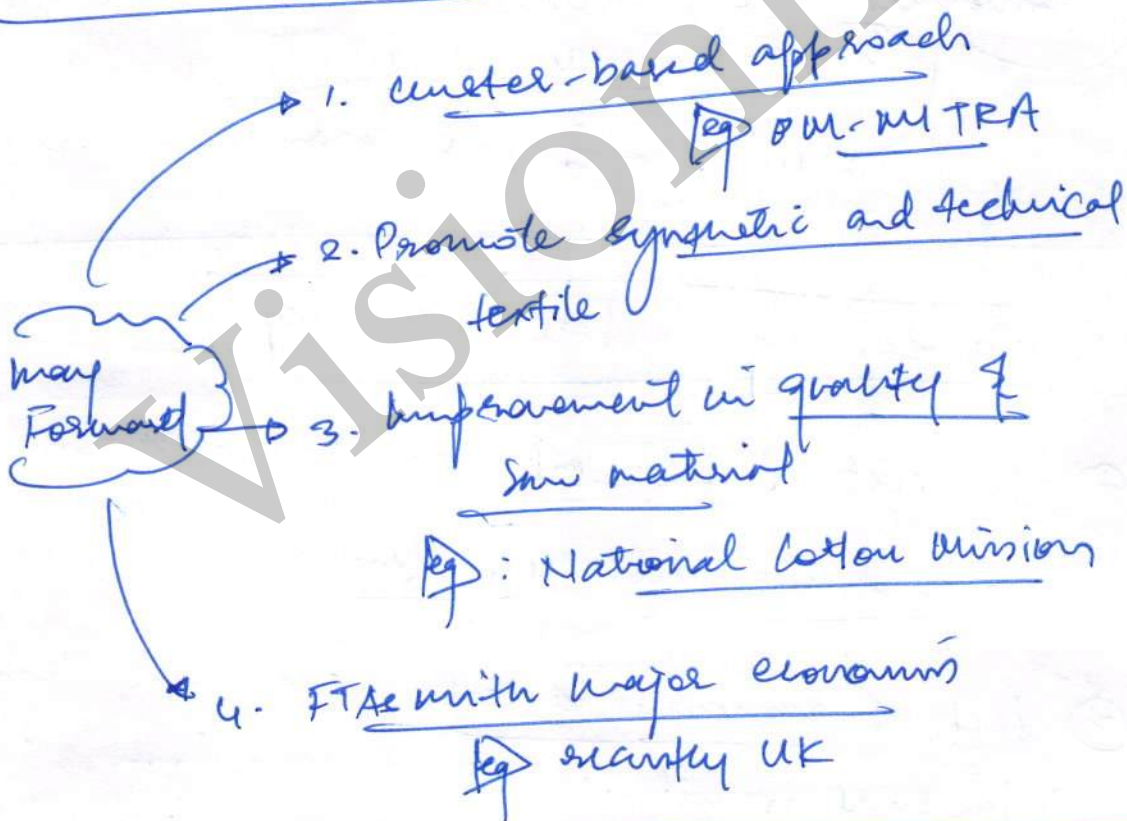 1. cluster-based approach
eg PM-MITRA
2. Promote synthetic and technical
textile
Way
Forward
3. Improvement in quality of
raw material
eg : National Cotton Mission
4. FTAs with major economies
eg recently UK
Vision